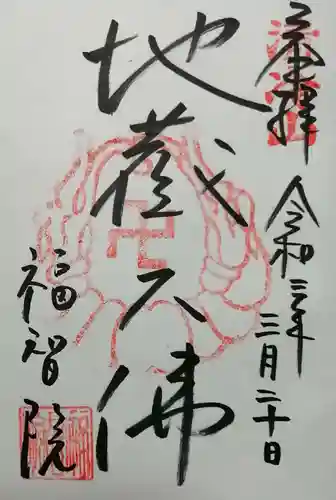 奉拝
令和三年
三月二十日
地蔵大佛
福智院